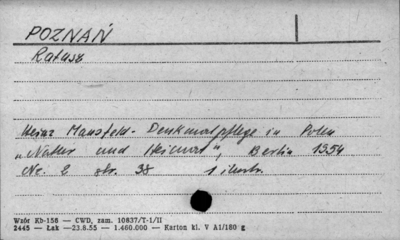 POZNAŃ
Ratusz
Heinz Mansfeld - Denkmalpflege in Polen
„Natur und Heimat", Berlin 1954
Nr. 2 str. 38 1 ilustr.
Wzór Kb-158 — CWD, zam. 10837/T-1/II
2445 — Łak —23.8.55 — 1.460.000 — Karton kl. V A1/180 g